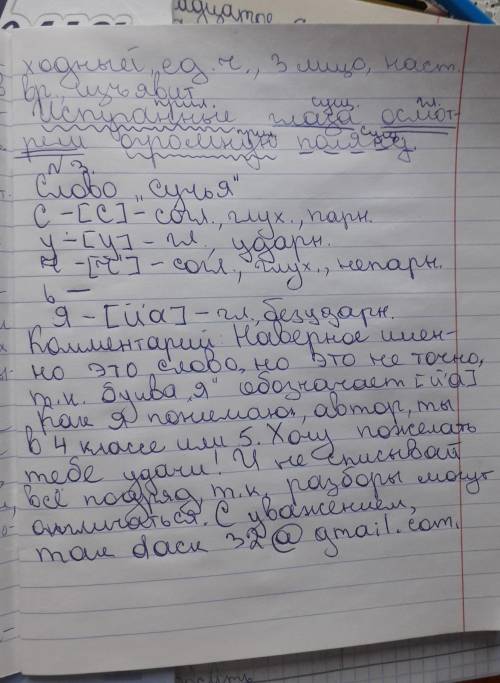 ходный, ед. ч., 3 лицо, наст.
вр., изъявит.
прил. сущ. гл.
Испуганные глаза осмот-
рели огромную поляну
прил. сущ.
N 3.
Слово „сучья"
С - [С] - согл., глух., парн.
у - [у] - гл., ударн.
ч - [ч'] - согл., глух., непарн.
ь —
Я - [й'а] - гл., безударн.
Комментарий: Наверное имен-
но это слово, но это не точно,
т.к. буква „я" обозначает [й'а]
Как я понимаю, автор, ты
в 4 классе или 5. Хочу пожелать
тебе удачи! И не списывай
всё подряд, т.к. разборы могут
отличаться. С уважением,
32@gmail.com.